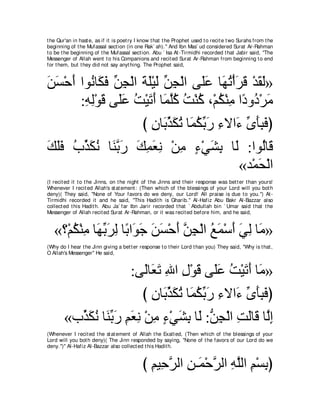 the Qur'an in haste, as if it is poetry I know that the Prophet used to recite two Surahs from the
beginning of the Mufassal section (in one Rak`ah).'' And Ibn Mas`ud considered Surat Ar-Rahman
to be the beginning of the Mufassal section. Abu `Isa At-Tirmidhi recorded that Jabir said, "The
Messenger of Allah went to his Companions and recited Surat Ar-Rahman from beginning to end
for them, but they did not say anything. The Prophet said,
«لَقَدْ قَرَأْتُهَا عَلَى الْجِنِّ لَيْلَةَ الْجِنِّ فَكَانُوا أَحْسَنَ
مَرْدُودًا مِنْكُمْ، كُنْتُ كُلَّمَا أَتَيْتُ عَلَى قَوْلِهِ:
(فَبِأَىِّ ءَالاءِ رَبِّكُمَا تُكَذِّبَانِ )
قَالُوا: لَا بِشَيْءٍ مِنْ نِعَمِكَ رَبَّنَا نُكَذِّبُ فَلَكَ
الْحَمْد»
(I recited it to the Jinns, on the night of the Jinns and their response was better than yours!
Whenever I recited Allah's statement: (Then which of the blessings of your Lord will you both
deny)( They said, "None of Your favors do we deny, our Lord! All praise is due to you.'') At-
Tirmidhi recorded it and he said, "This Hadith is Gharib.'' Al-Hafiz Abu Bakr Al-Bazzar also
collected this Hadith. Abu Ja`far Ibn Jarir recorded that `Abdullah bin `Umar said that the
Messenger of Allah recited Surat Ar-Rahman, or it was recited before him, and he said,
«مَا لِي أَسْمَعُ الْجِنَّ أَحْسَنَ جَوَابًا لِرَبِّهَا مِنْكُمْ؟»
(Why do I hear the Jinn giving a better response to their Lord than you) They said, "Why is that,
O Allah's Messenger'' He said,
«مَا أَتَيْتُ عَلَى قَوْلِ اللهِ تَعَالَى:
(فَبِأَىِّ ءَالاءِ رَبِّكُمَا تُكَذِّبَانِ )
إِلَّا قَالَتِ الْجِنُّ: لَا بِشَيْءٍ مِنْ نِعَمِ رَبِّنَا نُكَذِّب»
(Whenever I recited the statement of Allah the Exalted, (Then which of the blessings of your
Lord will you both deny)( The Jinn responded by saying, "None of the favors of our Lord do we
deny.'')'' Al-Hafiz Al-Bazzar also collected this Hadith.
(بِسْمِ اللَّهِ الرَّحْمَـنِ الرَّحِيمِ )